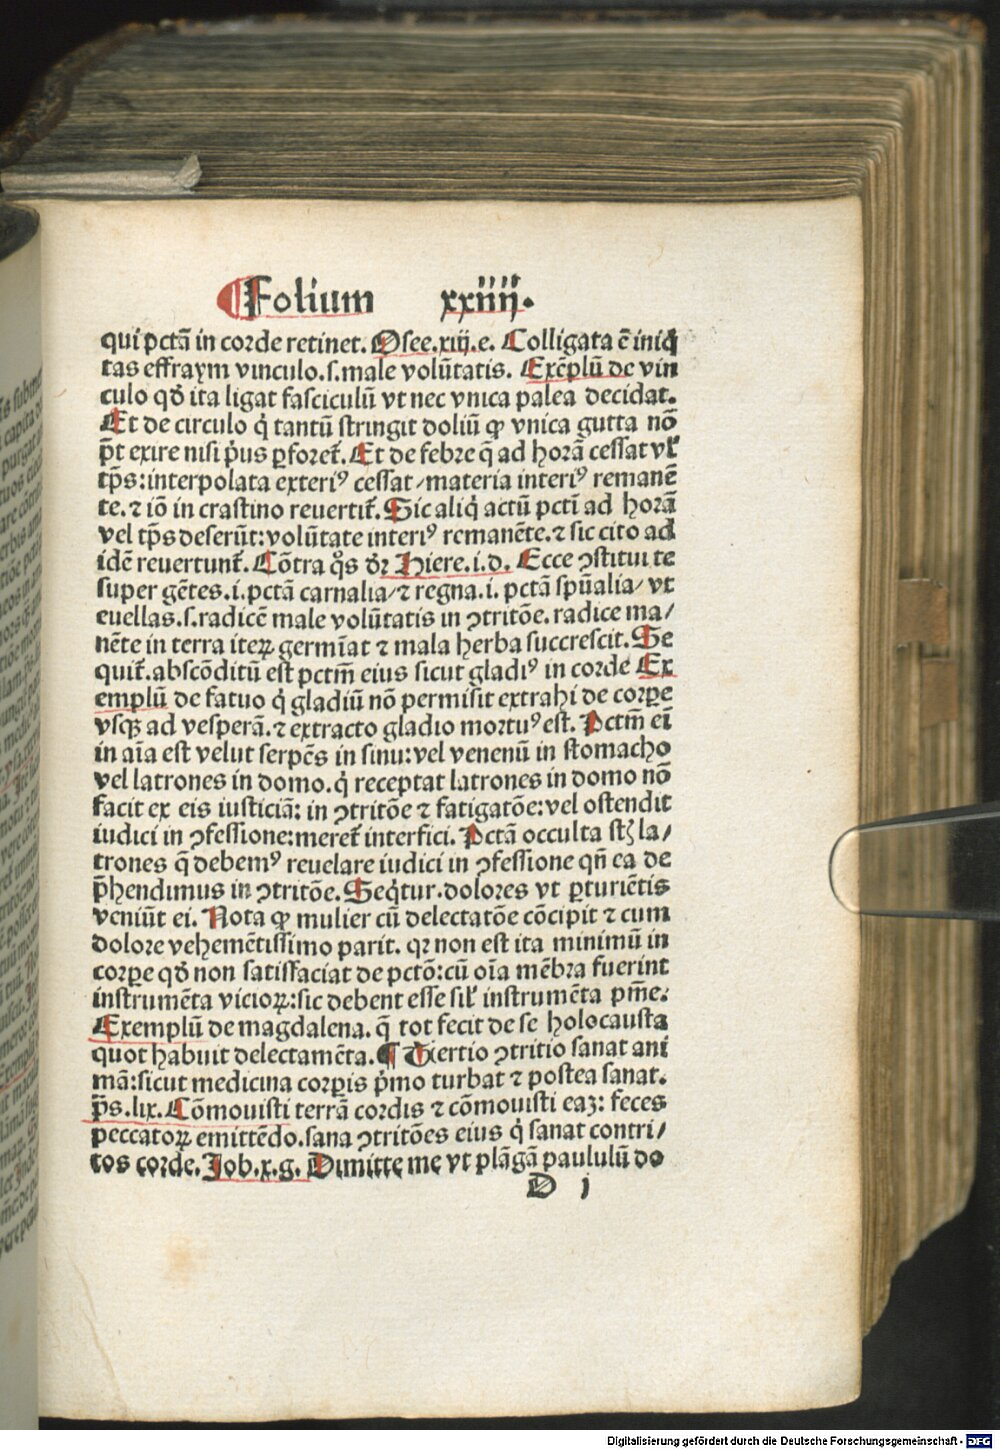 ¶Folium xxiiij.
qui pctā in corde retinet. Osee.xiij.e. Colligata ē iniq̇
tas effraym vinculo.s.male volūtatis. Exēplū de vin
culo qđ ita ligat fasciculū vt nec vnica palea decidat.
Et de circulo q̇ tantū stringit doliū ꝙ vnica gutta nō
p̄t exire nisi p̓us ꝑforet᷑. Et de febre q̄ ad horā cessat vl̓
tp̄s: interpolata exteriꝰ cessat/materia interiꝰ remanē
te. ⁊ iō in crastino reuertit᷑. Sic aliq̇ actū pcti ad horā
vel tp̄s deserūt: volūtate interiꝰ remanēte. ⁊ sic cito ad
idē reuertunt᷑. Cōtra q̊s dr̄ Hiere.i.d. Ecce ꝯstitui te
super gētes.i.pctā carnalia/⁊ regna.i. pctā spūalia/ vt
euellas.s.radicē male volūtatis in ꝯtritōe. radice ma/
nēte in terra iteꝝ germīat ⁊ mala herba succrescit. Se
quit᷑.abscōditū est pctm̄ eius sicut gladiꝰ in corde Ex
emplū de fatuo q̇ gladiū nō permisit extrahi de corꝑe
vsqꝫ ad vesperā. ⁊ extracto gladio mortuꝰ est. Pctm̄ ei
in aīa est velut serpēs in sinu: vel venenū in stomacho
vel latrones in domo. q̇ receptat latrones in domo nō
facit ex eis iusticiā: in ꝯtritōe ⁊ fatigatōe: vel ostendit
iudici in ꝯfessione: meret᷑ interfici. Pctā occulta st̄ la/
trones q̄ debemꝰ reuelare iudici in ꝯfessione qn̄ ea de
p̄hendimus in ꝯtritōe. Seq̇tur.dolores vt ꝑturiētis
veniūt ei. Nota ꝙ mulier cū delectatōe cōcipit ⁊ cum
dolore vehemētissimo parit. qꝛ non est ita minimū in
corꝑe qđ non satisfaciat de pctō: cū oīa mēbra fuerint
instrumēta vicioꝝ: sic debent esse sil̓ instrumēta pn̄ie.
Exemplū de magdalena. q̄ tot fecit de se holocausta
quot habuit delectamēta. ¶ Tertio ꝯtritio sanat ani
mā: sicut medicina corꝑis p̓mo turbat ⁊ postea sanat.
p̄s.lix. Cōmouisti terrā cordis ⁊ cōmouisti eaꝫ: feces
peccatoꝝ emittēdo.sana ꝯtritōes eius q̇ sanat contri/
tos corde. Job.x.g. Dimitte me vt plāgā paululū do
D j
Digitalisierung gefördert durch die Deutsche Forschungsgemeinschaft - DFG